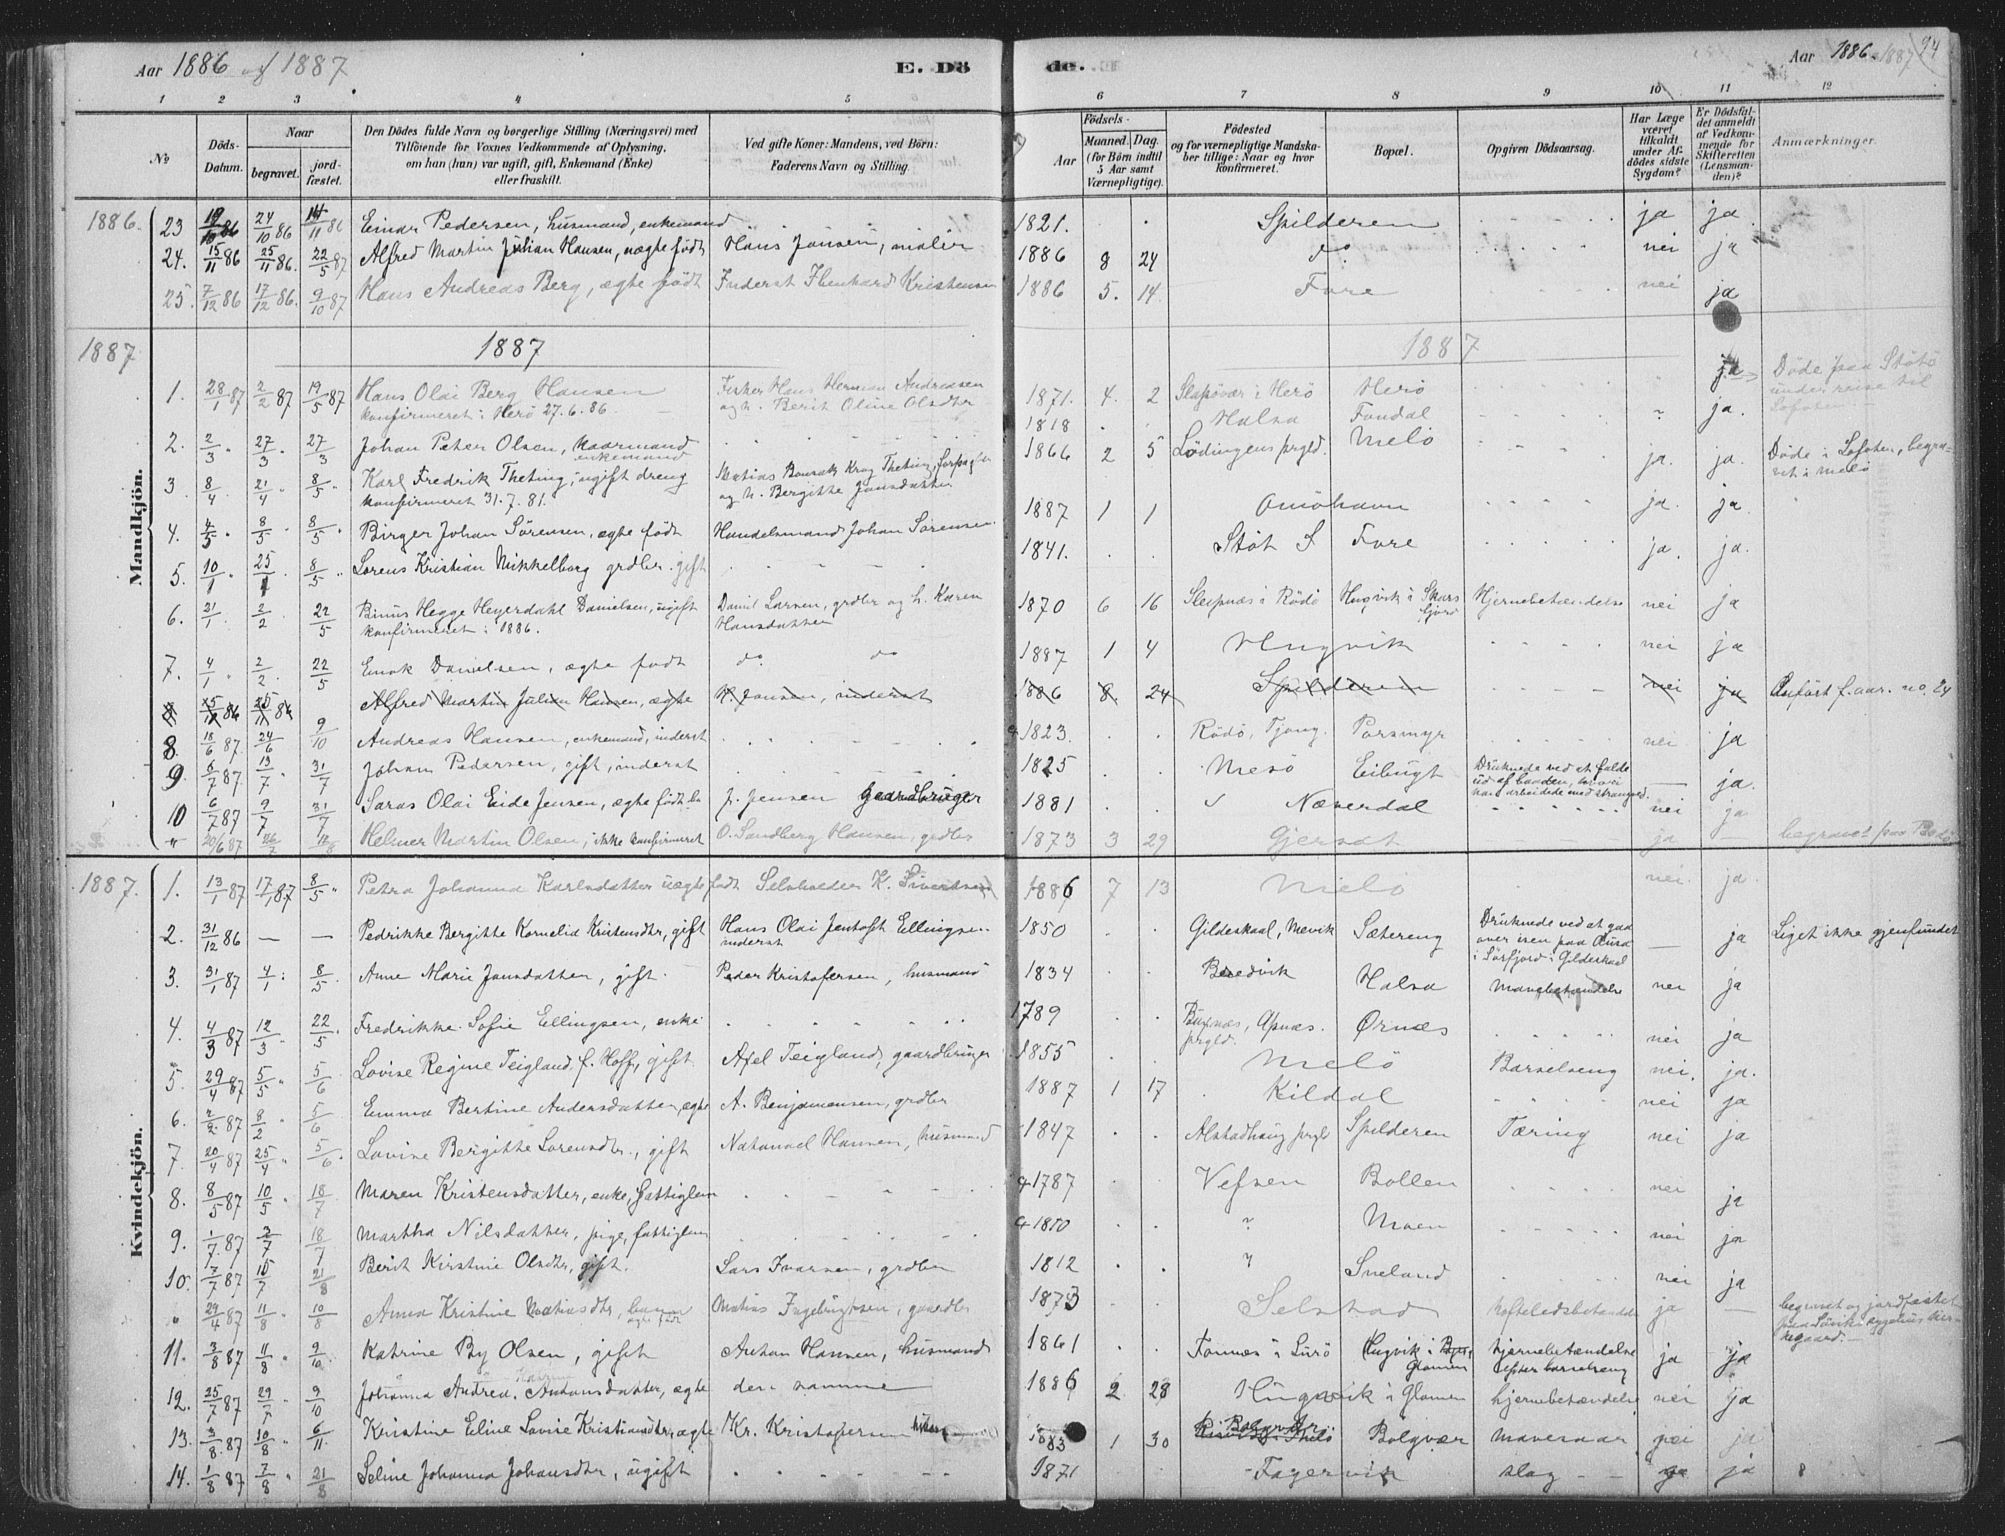 Aar 1886 og 1887
E. Dö
de.
Aar 1886-1887
94
1 2 3 4 5 6 7 8 9 10 11 12
No
Döds-Datum.
Naar
begravet.
jordfæstet.
Den Dödes fulde Navn og borgerlige Stilling (Næringsvei) med
Tilföiende for Voxnes Vedkommende af Oplysning,
om han (hun) var ugift, gift, Enkemand (Enke)
eller fraskilt.
Ved gifte Koner: Mandens, ved Börn:
Faderens Navn og Stilling.
Födsels-
Aar
Maaned. Dag.
(for Börn indtil
5 Aar samt
Værnepligtige).
Födested
og for værnepligtige Mandska-
ber tillige: Naar og hvor
konfirmeret.
Bopæl.
Opgiven Dödsaarsag.
Har Læge
været
tilkaldt
under Af-
dödes sidste
Sygdom?
Er Dödsfal-
det anmeldt
af Vedkom-
mende for
Skifteretten
(Lensman-
den)?
Anmærkninger.
Mandkjön.
1886. 23 19/10 86 24/10 86 14/11 86 Einar Pedersen, husmand, enkemand 1821. Spilderen ja ja
24. 15/11 86 25/11 86. 22/5 87 Alfred Martin Julian Hansen, uægte født Hans Jansen, maler 1886 8 24 do. nei ja
25. 7/12 86 17/12 86. 9/10 87 Hans Andreas Berg, ægte født Inderst Kristensen 1886 5. 14. Fore nei ja
1887 1887 1887
1. 28/1 87 2/2 87 19/5 87 Hans Olai Berg Hansen Fisker Hans Herman Andreasen 1871. 4. 2 i Herö Herö ja Døde paa Støtö
konfirmeret i Herö 27.6.86. og h. Berit Oline Olsdtr under reise til
Lofoten
2. 2/3 27/3 27/3 Johan Peter Olsen, kaarmand 1818 Halsa Fondal ja.
enkemand
3. 8/4 21/4 8/5 Karl Fredrik Theting, ugift dreng Matias Krog Theting, 1866 2 5 Lödingens prgld. Melö ja. ja. Døde i Lofoten, begra-
konfirmeret 31.7.81. og h. Bergitte Jansdatter vet i Melö
4. 4/5 8/5 8/5 Birger Johan Sörensen, ægte født Handelsmand Johan Sörensen 1887 1 1 Omöhavn ja. ja.
5. 10/1 25/1 8/5 Lorens Kristian Mikkelborg grdbr. gift 1841. Støt Fore ja. ja.
6. 21/1. 2/2 22/5 Hegge Heyerdahl Danielsen, ugift Daniel Larsen, grdbr og h. Karen 1870 6 16 i Rödö i Skars Hjernebetændelse nei ja
konfirmeret i 1886. Hansdatter fjord
7. 4/1 2/2. 22/5 Enok Danielsen, ægte født do. do 1887 1 4 Hugvik nei ja
8 15/11 86 25/11 86 Alfred Martin Julian Hansen, ægte H. Jansen, inderst 1886 8. 24 Spilderen nei ja Anført f. aar. no. 24
8. 18/6 87 24/6 9/10 Andreas Hansen, enkemand, inderst 1823. Rödö, Tjong. Porsmyr nei ja
9. 6/7 87. 13/7 31/7 Johan Pedersen, gift, inderst 1825 Mesö Eibugt Druknede ved at falde ja.
ud af baaden,
10 6/7 87 9/7 31/7 Olai Eide Jensen, ægte født J. Jensen Gaardbruger 1881 Næverdal nei ja
" 20/6 87 26/7 Helmer Martin Olsen, ikke konfirmeret O. Sandberg Hansen, grdbr 1873 3 29 Gjersat ja begravet paa Bodö
Kvindekjön.
1887. 1. 13/1 87 17/1 87 8/5 Petra Johanna Karlsdatter uægte født Selvholder K. Sivertsen 1886 7 13 Melö nei. ja.
2. 31/12 86 — — Pedrikke Bergitte Kornelia Kristensdtr, gift Hans Olai Jentoft Ellingsen 1850 Gildeskaal, Mevik Sætereng Druknede ved at gaa — ja Liget ikke gjenfundet
inderst over isen paa
i Sörfjord i Gildeskaal
3. 31/1 87 4/1 8/5 Anne Marie Jansdatter, gift Peder Kristofersen, husmand 1834 Halsa Mavebetændelse nei ja
4. 4/3 87 12/3 22/5 Fredrikke Sofie Ellingsen, enke 1789 Ørnes nei ja
prgld.
5. 29/4 87 5/5 5/6 Lovise Regine Teigland f. Hoff, gift Axel Teigland, gaardbruger 1855 Melö Barselseng nei. ja.
6. 2/2 87 8/2 5/6 Emma Bertine Andersdatter, ægte A. Benjaminsen, grdbr 1887 1 17 Kildal nei ja
7. 20/4 87 25/4 5/6. Lovise Bergitte Lorensdtr., gift Natanael Hansen, husmand 1847 Alstadhaug prgld Spilderen Tæring nei ja
8. 8/5 87 10/5 18/7 Maren Kristensdatter, enke, fattiglem 1787 Vefsen Bollen nei ja
9. 1/7 87 3/7 18/7 Martha Nilsdatter, pige, fattiglem " Moen nei ja
10. 7/7 87 10/7 21/8 Berit Kirstine Olsdtr, gift. Lars Ivarsen, grdbr 1812 " Sneland nei ja
" 29/4 87 11/8 10/8 Anna Kristine Matiasdtr, barn Matias gaardbr 1873 Selstad ja — begravet og jordfæstet
ægte født paa
11. 3/8 87 11/8 9/10 Katrine By Olsen, gift Anthon Hansen, husmand 1861 i Lurö Hugvik i Hjernebetændelse ja ja
Glomen efter barselseng
12. 25/7 87 29/7 9/10 Johanna Andrea Antonsdatter, ægte den samme 1886 2 28 Hugvik i Glomen hjernebetændelse nei ja
13. 3/8. 87 10/8 6/11. Kristine Eline Lovise Kristiansdtr, ægte Kr. Kristofersen 1883 1 30 Bolgvær Bolgvær mavesaar nei ja
14. 1/8 87 7/8 21/8 Seline Johanna Johansdtr, ugift 1871 Fagervik slag ja ja